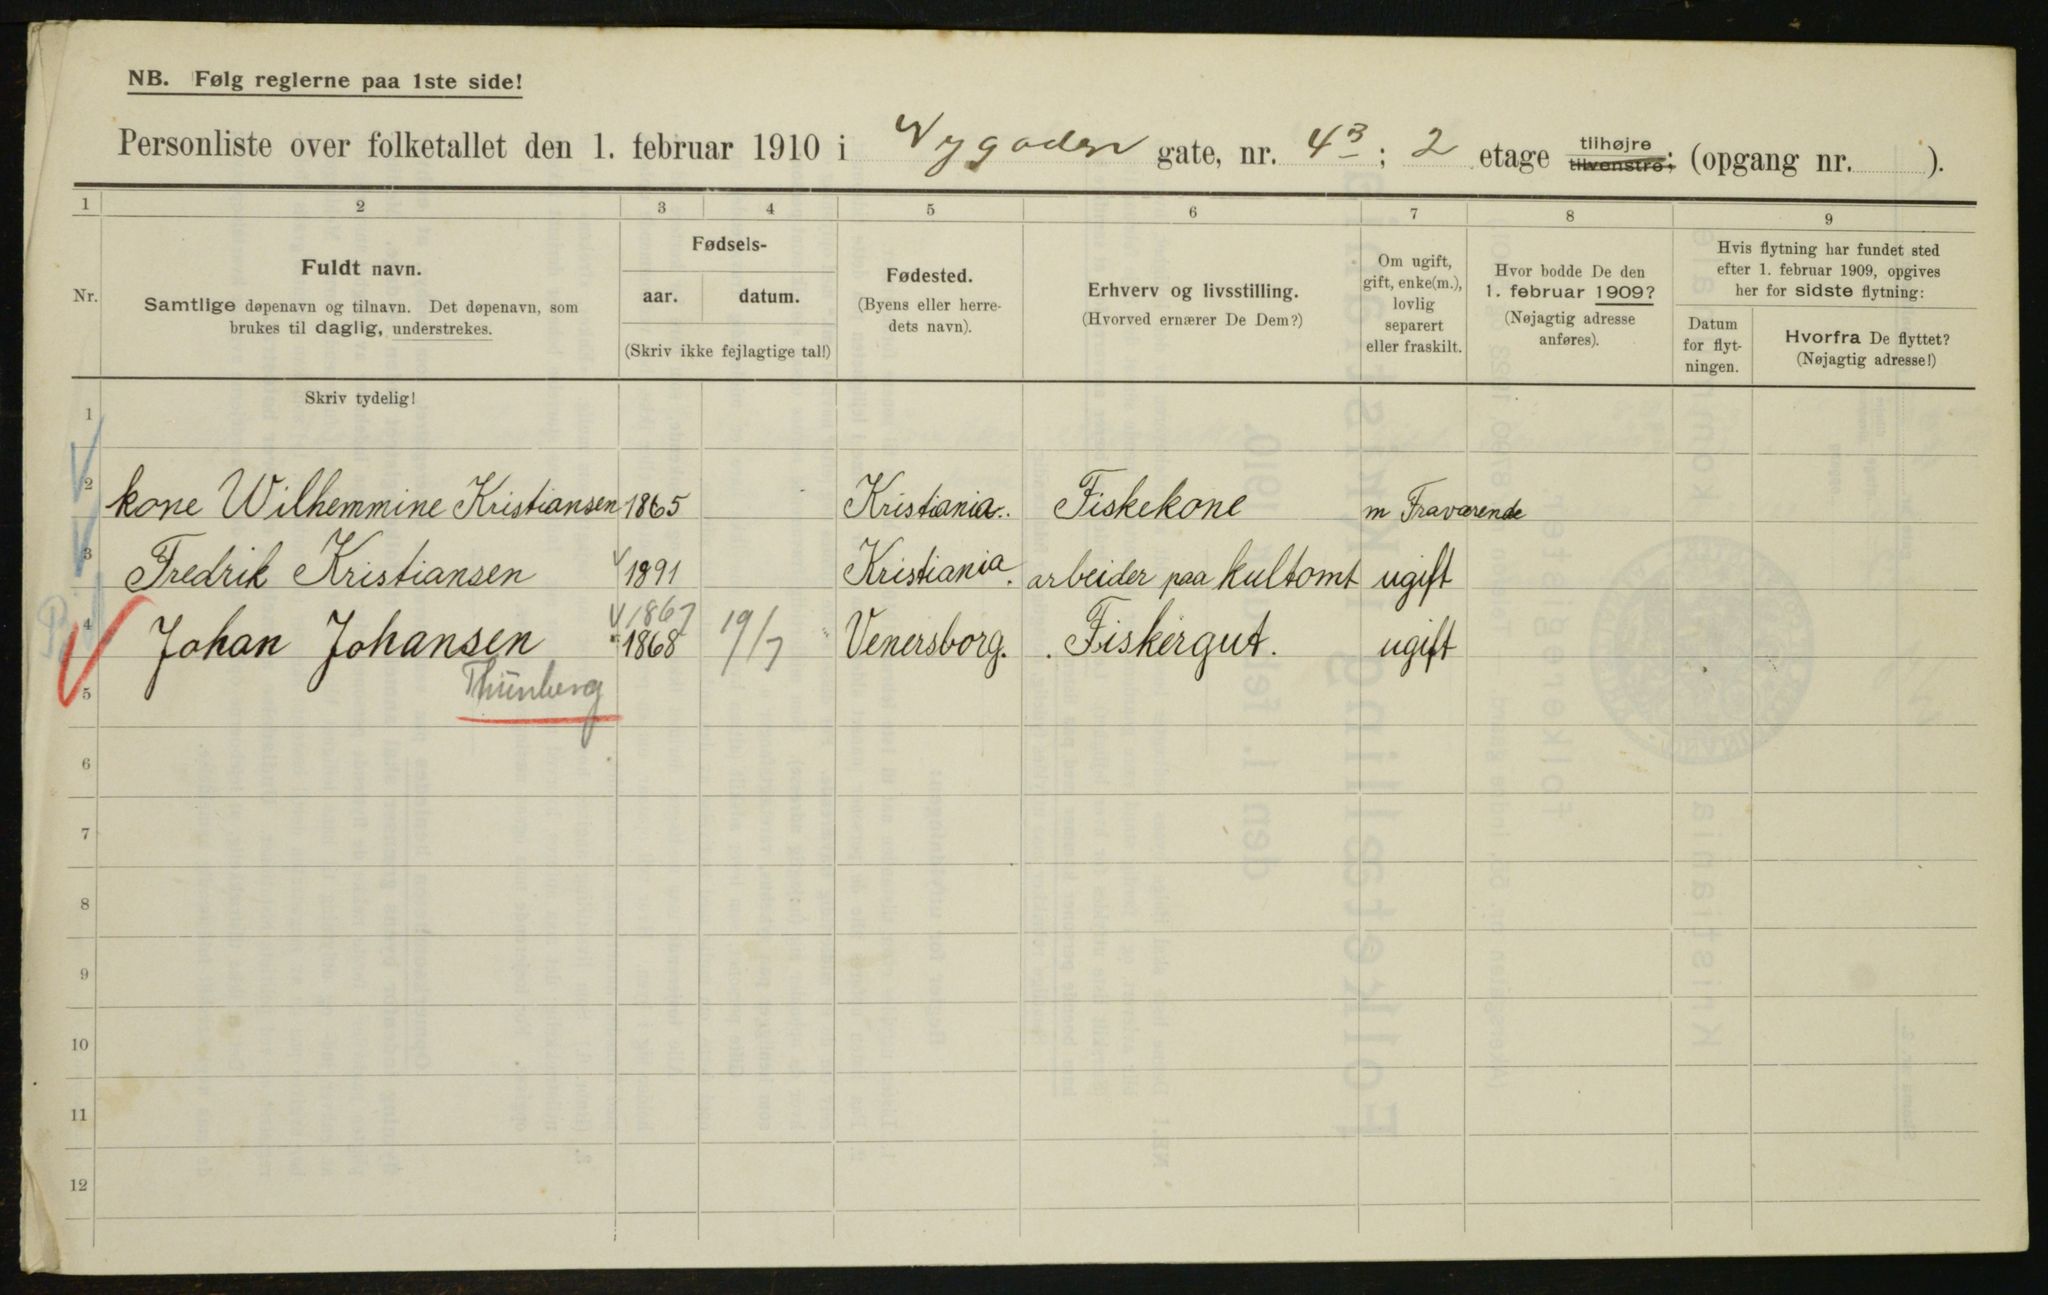 NB. Følg reglerne paa 1ste side!
Personliste over folketallet den 1. februar 1910 i Nygaden gate, nr. 4B; 2 etage tilhøjre tilvenstre; (opgang nr. ).
1 2 3 4 5 6 7 8 9
Nr.
Fuldt navn.
Samtlige døpenavn og tilnavn. Det døpenavn, som
brukes til daglig, understrekes.
Fødsels-
aar. datum.
(Skriv ikke fejlagtige tal!)
Fødested.
(Byens eller herre-
dets navn).
Erhverv og livsstilling.
(Hvorved ernærer De Dem?)
Om ugift,
gift, enke(m.),
lovlig
separert
eller fraskilt.
Hvor bodde De den
1. februar 1909?
(Nøjagtig adresse
anføres).
Hvis flytning har fundet sted
efter 1. februar 1909, opgives
her for sidste flytning:
Datum
for flyt-
ningen.
Hvorfra De flyttet?
(Nøjagtig adresse!)
Skriv tydelig!
1
2 kone Wilhemmine Kristiansen 1865 Kristiania. Fiskekone m Fraværende
3 Fredrik Kristiansen 1891 Kristiania. arbeider paa kultomt ugift
1867
4 Johan Johansen 1868 19/7 Venersborg. Fiskergut. ugift
5 Thunberg
6
7
8
9
10
11
12